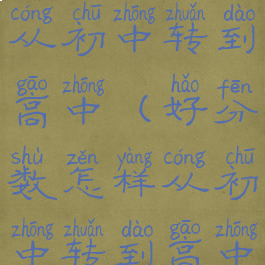 cóng chū zhōng zhuǎn dào
从初中转到
gāo zhōng hǎo fēn
高中（好分
shù zěn yàng cóng chū
数怎样从初
zhōng zhuǎn dào gāo zhōng
中转到高中